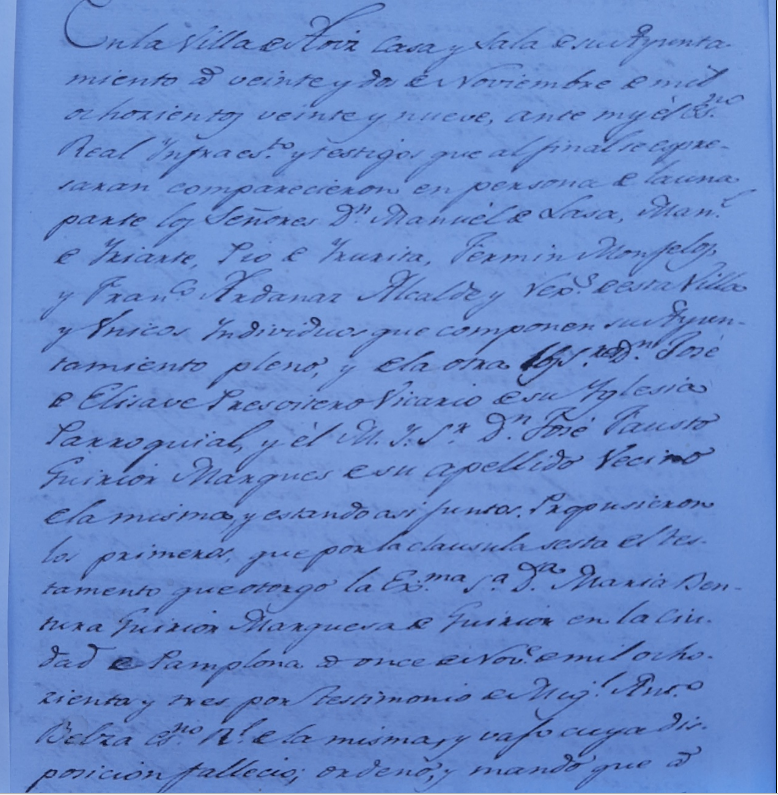 En la Villa de Aoiz Casa y Sala de su Ayunta
miento a veinte y dos de Noviembre de mil
ochozientos veinte y nueve, ante my él Es.no
Real Infraes.to y testigos que al final se expre-
saran comparecieron en persona de la una
parte los Señores D.n Manuél de Lasa, Man.l
de Yriarte, Pio de Yrurita, Fermin Monjelos,
y Fran.co Ardanaz Alcalde y Vez.s de esta Villa
y Vnicos Individuos que componen su Ayun-
tamiento pleno, y de la otra los S.res D.n José
de Elisave Presvitero Vicario de su Yglesia
Parroquial, y él M. Y. S.r D.n José Fausto
Guirior Marques de su apellido Vecino
de la misma, y estando asi juntos. Propusieron
los primeros, que por la clausula sesta del tes-
tamento que otorgó la Ex.ma S.a D.a Maria Ben-
tura Guirior Marquesa de Guirior en la ciu-
dad de Pamplona a once de Nov.e de mil ocho-
zientos y tres por testimonio de Mig.l Ant.o
Belza es.no R.l de la misma, y vajo cuya dis-
posición fallecio; ordenó, y mandó que a